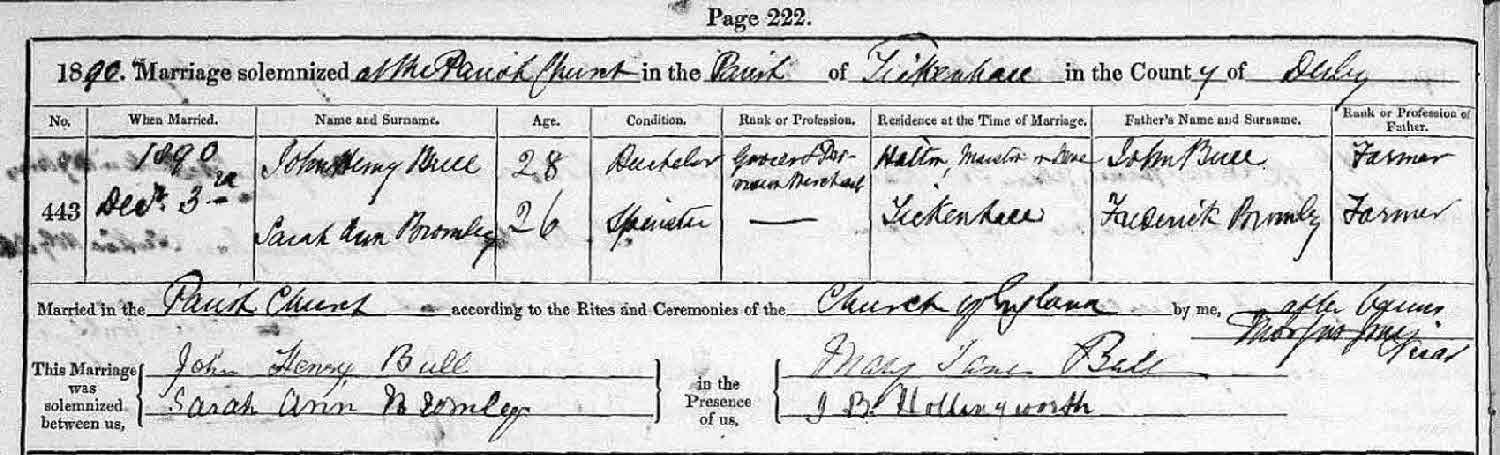 Page 222.
1890. Marriage solemnized at the Parish Church in the Parish of Tickenhall in the County of Derby
No. When Married. Name and Surname. Age. Condition. Rank or Profession. Residence at the Time of Marriage. Father's Name and Surname. Rank or Profession of Father.
443 1890 Decr. 3rd John Henry Bull 28 Bachelor Grocer & Merchant John Bull Farmer
Sarah Ann Bromley 26 Spinster — Tickenhall Frederick Bromley Farmer
Married in the Parish Church according to the Rites and Ceremonies of the Church of England by me, after banns
Vicar
This Marriage was solemnized between us, John Henry Bull in the Presence of us, Mary Bull
Sarah Ann Bromley J B Hollingworth